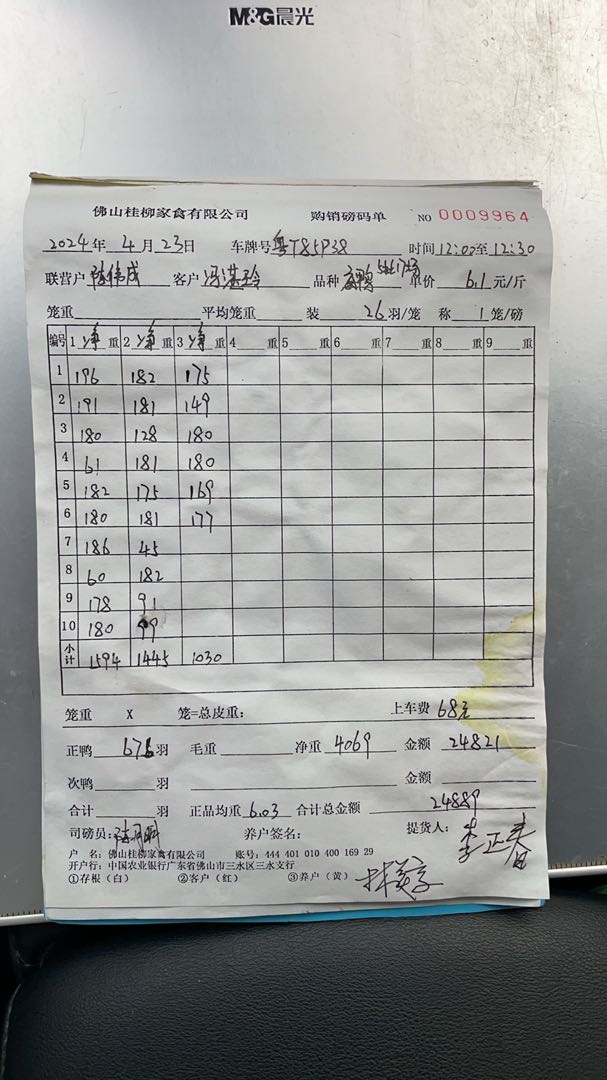 M&G晨光
佛山桂柳家禽有限公司 购销磅码单 NO 0009964
2024年 4月 23日 车牌号 粤T85P38 时间 12:00至 12:30
联营户 陈伟成 客户 冯湛玲 品种 单价 6.1 元/斤
笼重 平均笼重 装 26 羽/笼 称 1 笼/磅
编号 1 净 重 2 净 重 3 净 重 4 重 5 重 6 重 7 重 8 重 9 重
1 196 182 175
2 191 181 149
3 180 128 180
4 61 181 180
5 182 175 169
6 180 181 177
7 186 45
8 60 182
9 178 91
10 180 99
小计 1594 1445 1030
笼重 X 笼=总皮重: 上车费 68元
正鸭 675 羽 毛重 净重 4069 金额 24821
次鸭 羽 金额
合计 羽 正品均重 6.03 合计总金额 24889
司磅员: 养户签名: 提货人: 李正春
户 名: 佛山桂柳家禽有限公司 账号: 444 401 010 400 169 29
开户行: 中国农业银行广东省佛山市三水区三水支行
①存根(白) ②客户(红) ③养户(黄)